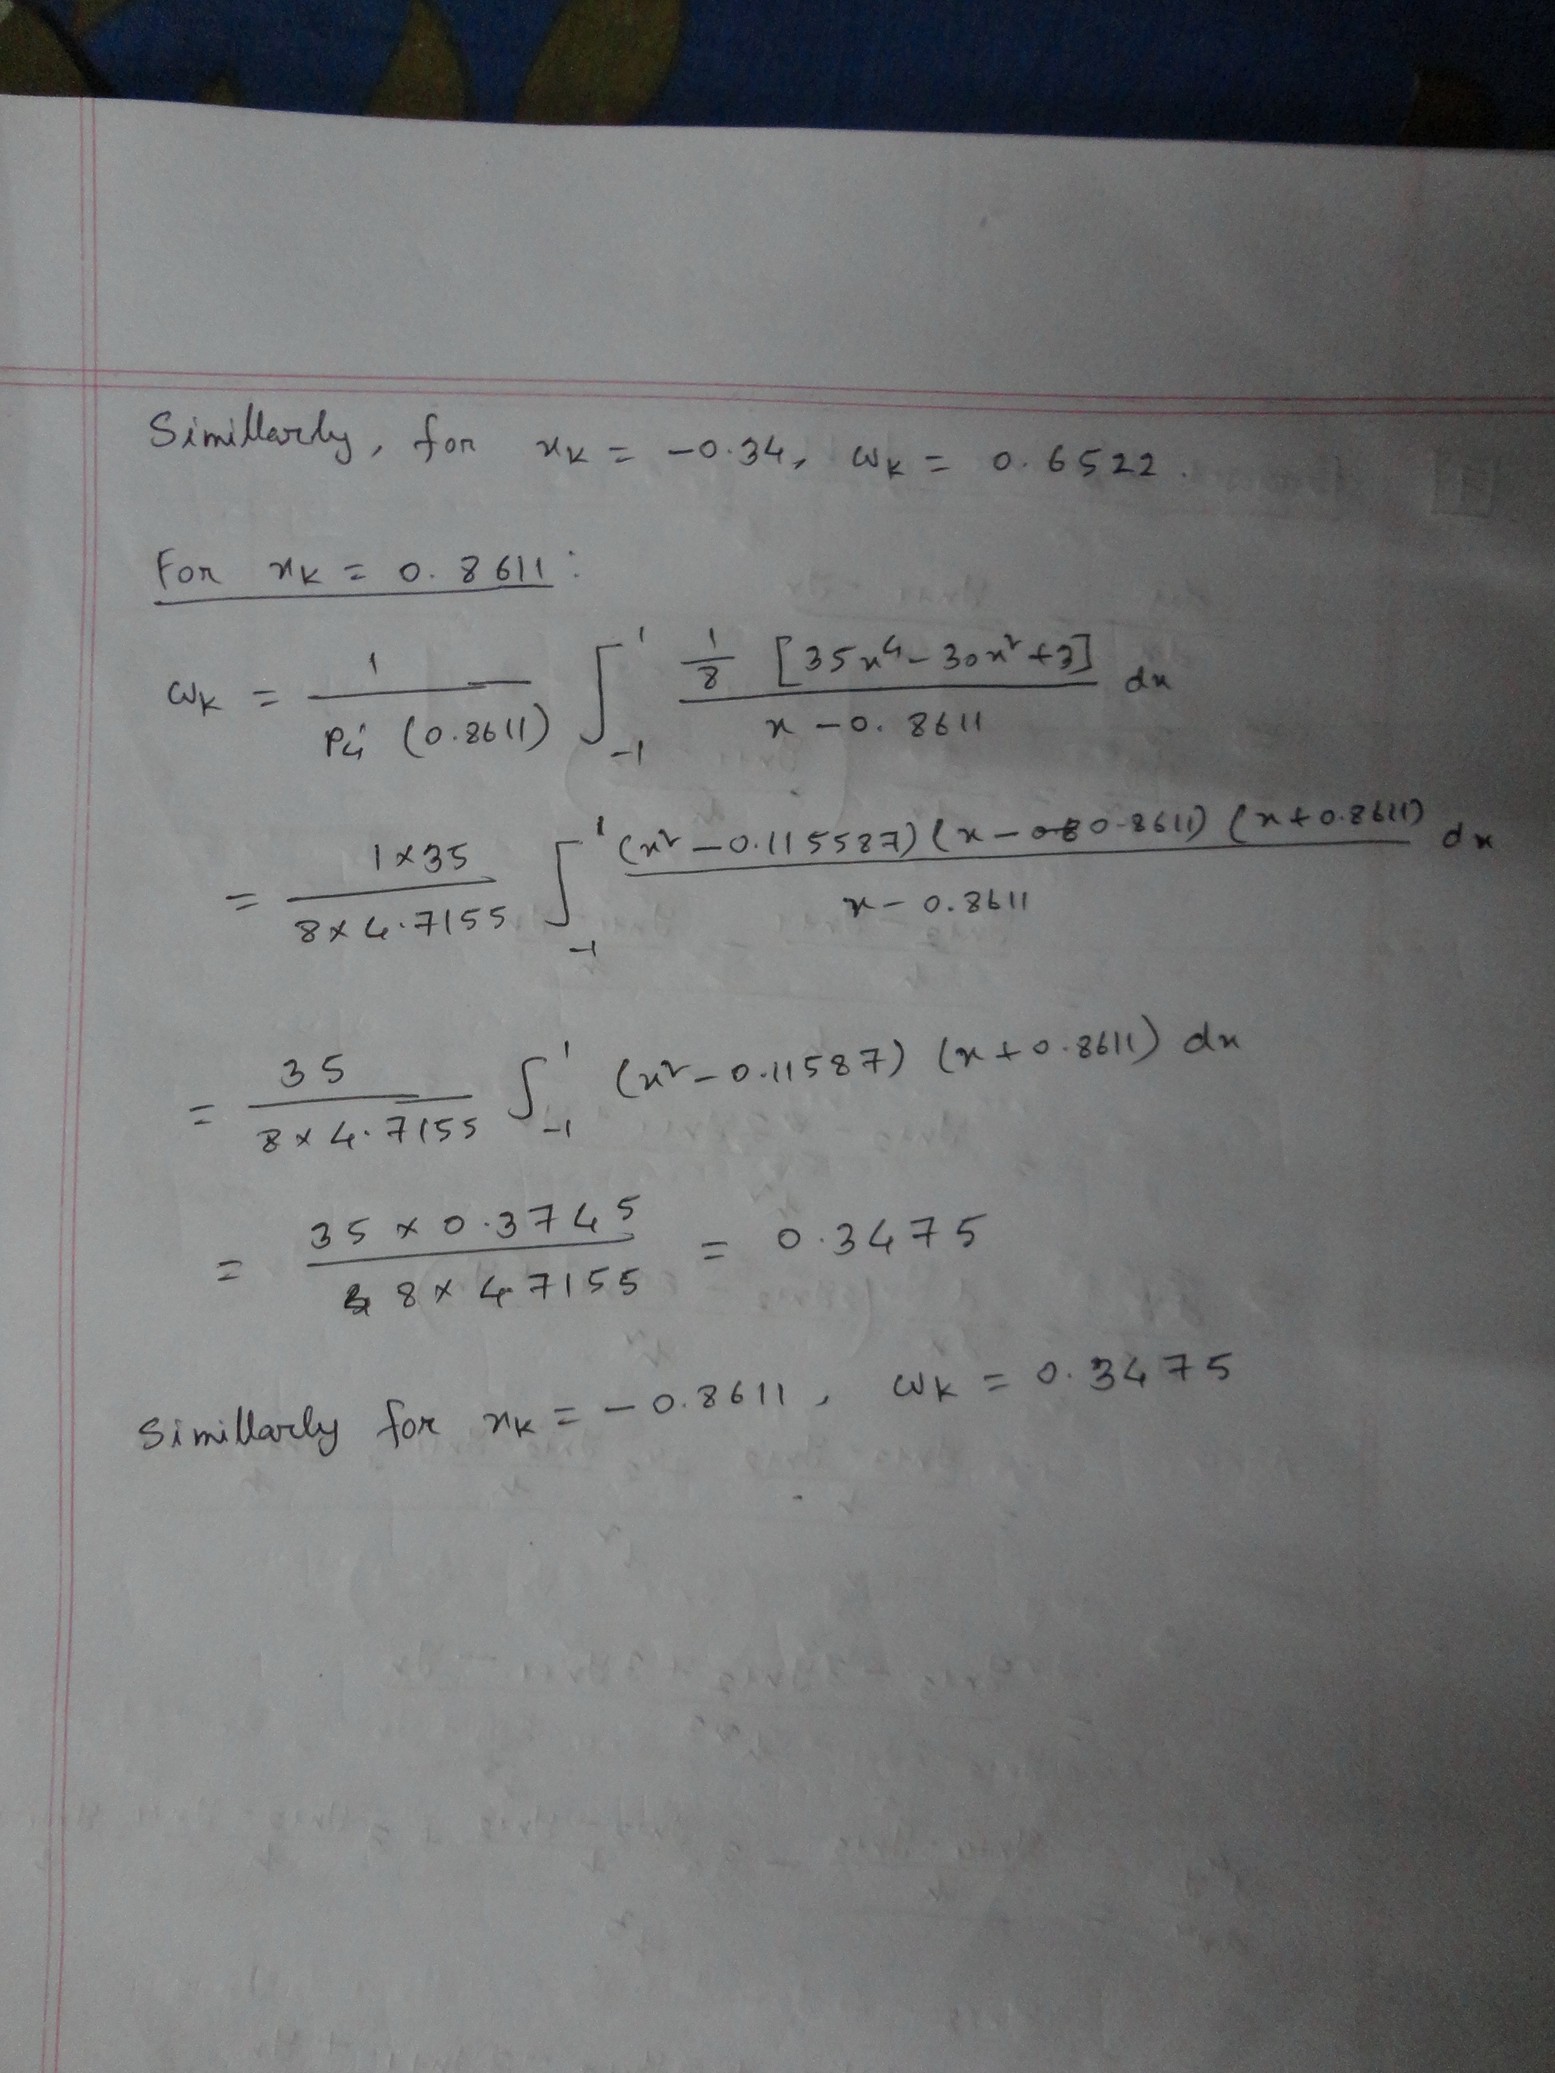 Simillarly, for xK = -0.34, ωK = 0.6522.
For xK = 0.8611:
ωK = 1 / P4' (0.8611) ∫_{-1}^{1} 1/8 [35x⁴ - 30x² + 3] / x - 0.8611 dx
= 1×35 / 8×4.7155 ∫_{-1}^{1} (x² - 0.115587) (x - 0.8611) (x + 0.8611) / x - 0.8611 dx
= 35 / 8×4.7155 ∫_{-1}^{1} (x² - 0.11587) (x + 0.8611) dx
= 35 × 0.3745 / 8×4.7155 = 0.3475
Simillarly for xK = -0.8611, ωK = 0.3475